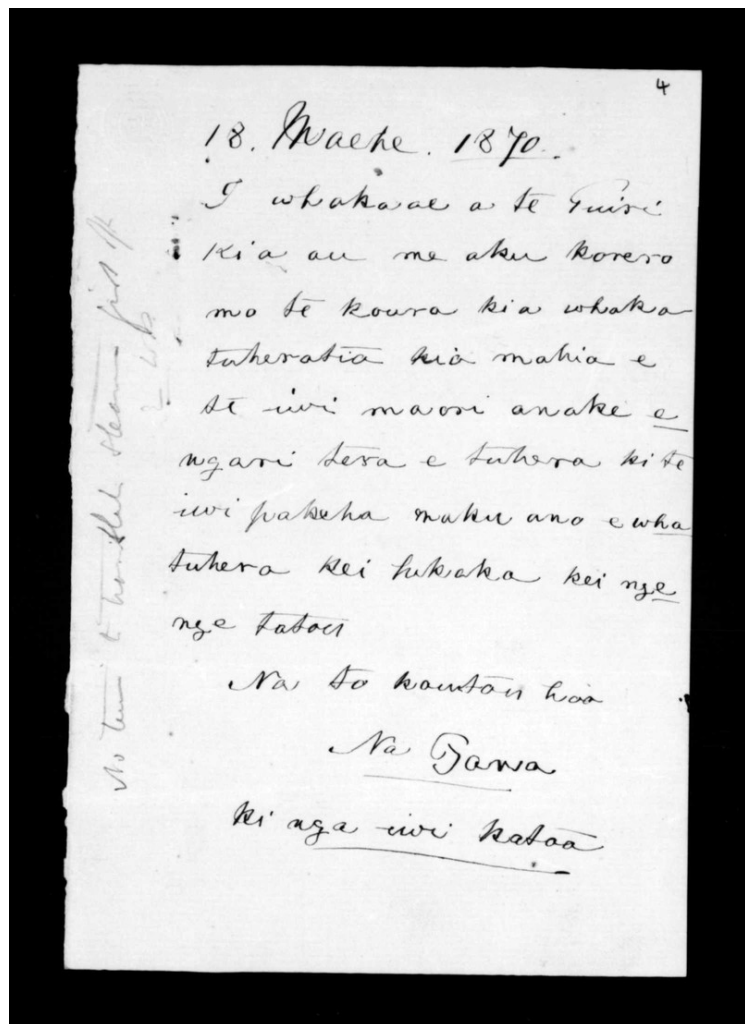 4
18. Maehe. 1870.
I whakaae a te
Kia au me aku korero
mo te koura kia whaka
tuheratia kia mahia e
te iwi maori anake e
ngari tera e tuhera ki te
iwi pakeha maku ano e wha
tuhera kei hukaka kei nge
nge tatou
Na to koutou hoa
Na Tawa
ki nga iwi katoa
No time to